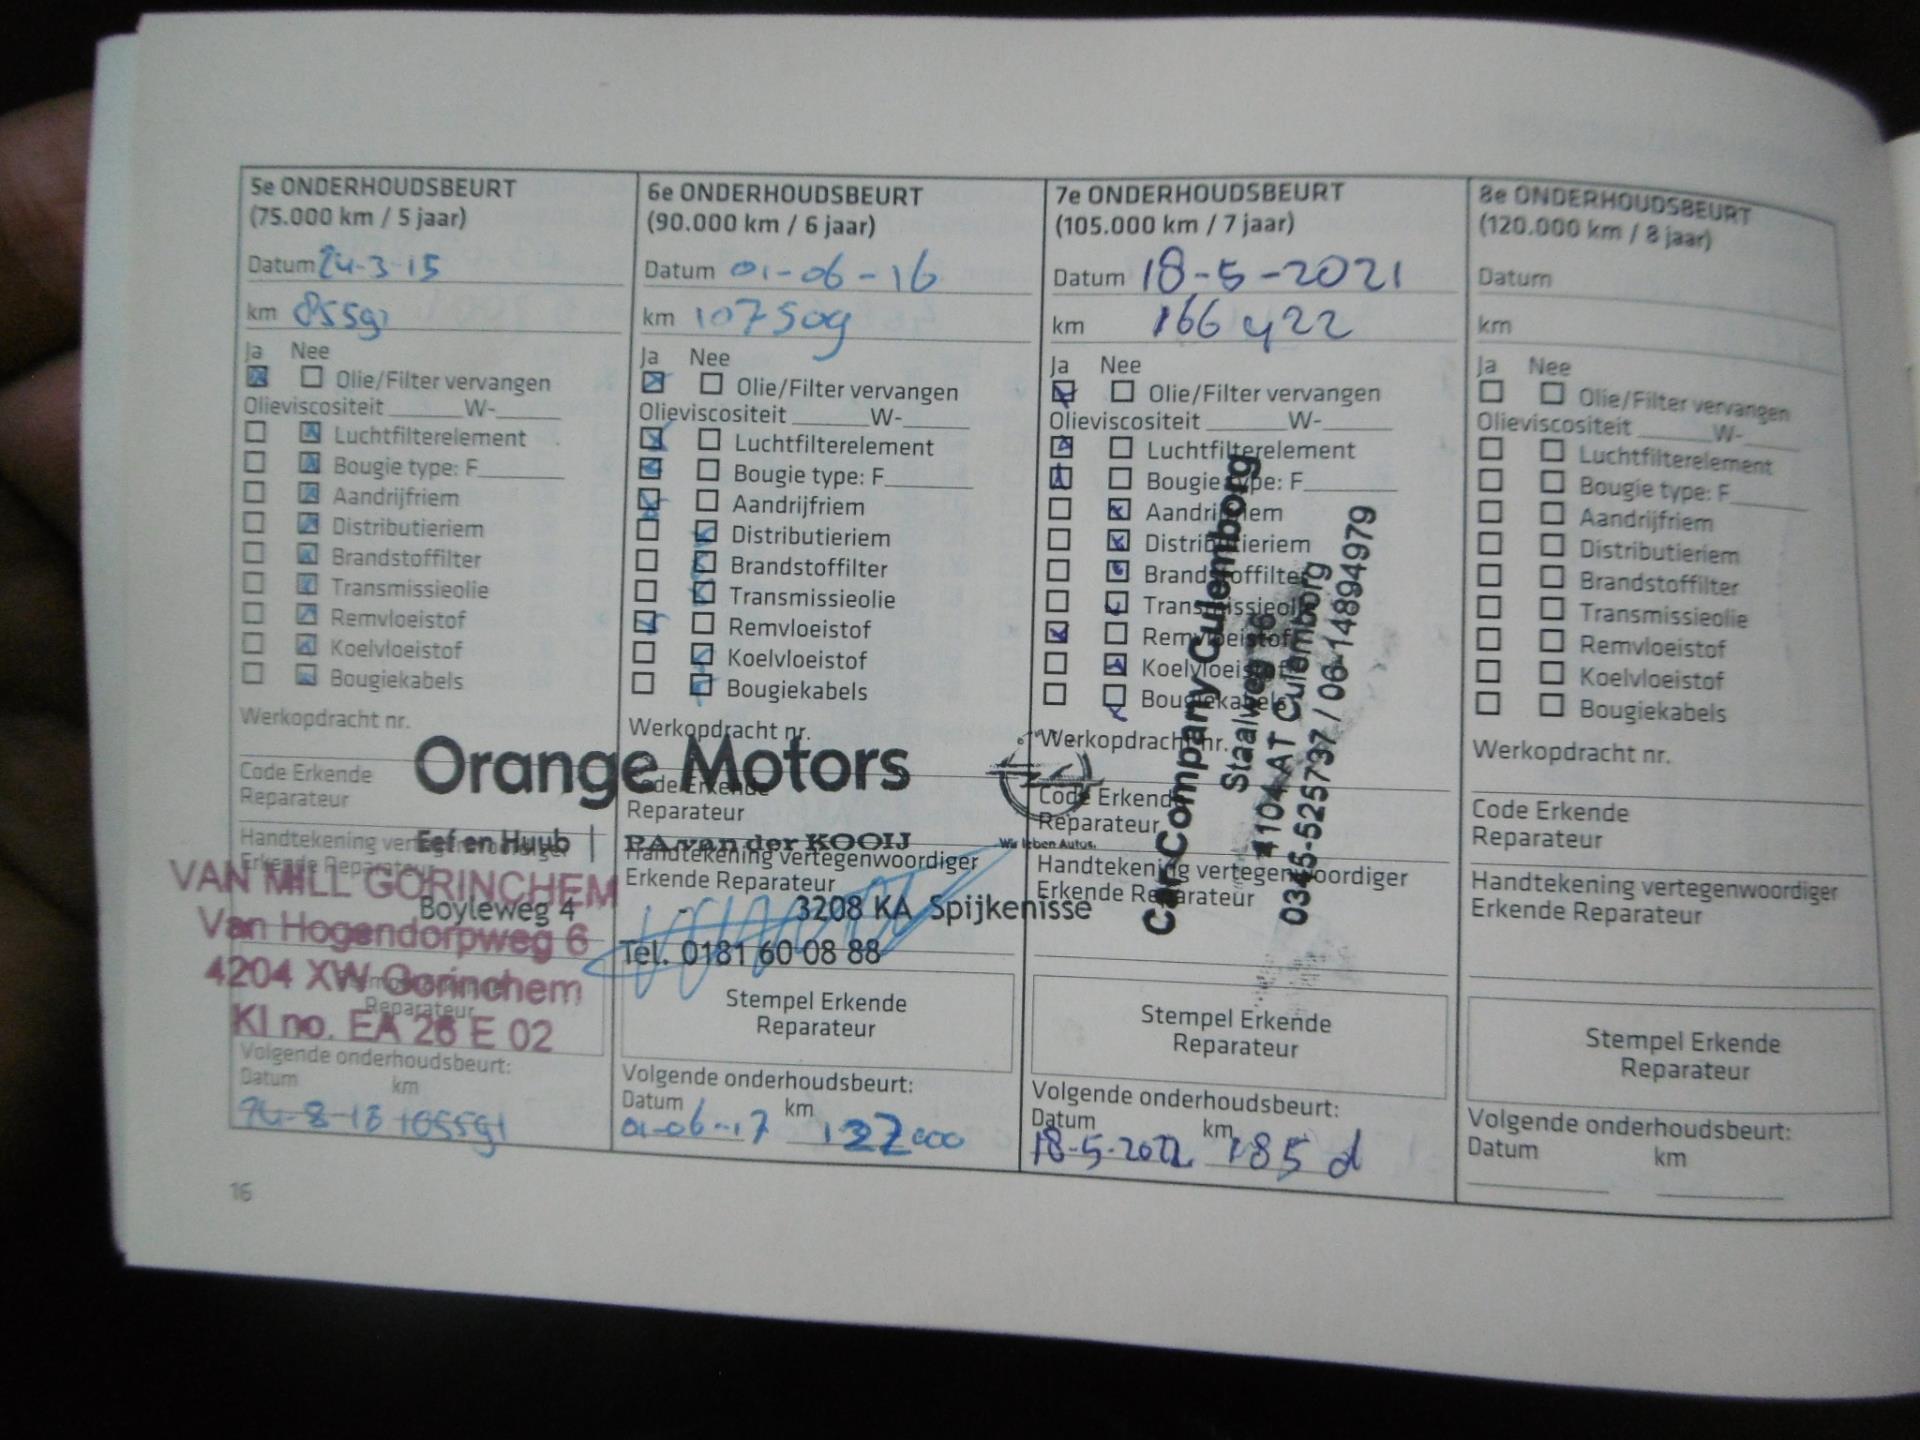 5e ONDERHOUDSBEURT
(75.000 km / 5 jaar)
Datum 24-3-15
km 85591
Ja Nee
Olie/Filter vervangen
Olieviscositeit ______W-_____
Luchtfilterelement
Bougie type: F_______
Aandrijfriem
Distributieriem
Brandstoffilter
Transmissieolie
Remvloeistof
Koelvloeistof
Bougiekabels
Werkopdracht nr.
Code Erkende
Reparateur
Handtekening vertegenwoordiger
Erkende Reparateur
VAN MILL GORINCHEM
Van Hogendorpweg 6
4204 XW Gorinchem
Reparateur
KI no. EA 26 E 02
Volgende onderhoudsbeurt:
Datum km
105591
16
6e ONDERHOUDSBEURT
(90.000 km / 6 jaar)
Datum 01-06-16
km 107509
Ja Nee
Olie/Filter vervangen
Olieviscositeit ______W-_____
Luchtfilterelement
Bougie type: F_______
Aandrijfriem
Distributieriem
Brandstoffilter
Transmissieolie
Remvloeistof
Koelvloeistof
Bougiekabels
Werkopdracht nr.
Orange Motors
Code Erkende
Reparateur
Eef en Huub | P.A. van der KOOIJ
Wir leben Autos.
Handtekening vertegenwoordiger
Erkende Reparateur
Boyleweg 4 - 3208 KA Spijkenisse
Tel. 0181 60 08 88
Stempel Erkende
Reparateur
Volgende onderhoudsbeurt:
Datum km
01-06-17 127000
7e ONDERHOUDSBEURT
(105.000 km / 7 jaar)
Datum 18-5-2021
km 166422
Ja Nee
Olie/Filter vervangen
Olieviscositeit ______W-_____
Luchtfilterelement
Bougie type: F_______
Aandrijfriem
Distributieriem
Brandstoffilter
Transmissieolie
Remvloeistof
Koelvloeistof
Bougiekabels
Werkopdracht nr.
Code Erkende
Reparateur
Handtekening vertegenwoordiger
Erkende Reparateur
Car Company Culemborg
Staalweg
4104 AT Culemborg
0345-525737 / 06-14894979
Stempel Erkende
Reparateur
Volgende onderhoudsbeurt:
Datum km
18-5-2022 185 d
8e ONDERHOUDSBEURT
(120.000 km / 8 jaar)
Datum
km
Ja Nee
Olie/Filter vervangen
Olieviscositeit ______W-_____
Luchtfilterelement
Bougie type: F_______
Aandrijfriem
Distributieriem
Brandstoffilter
Transmissieolie
Remvloeistof
Koelvloeistof
Bougiekabels
Werkopdracht nr.
Code Erkende
Reparateur
Handtekening vertegenwoordiger
Erkende Reparateur
Stempel Erkende
Reparateur
Volgende onderhoudsbeurt:
Datum km